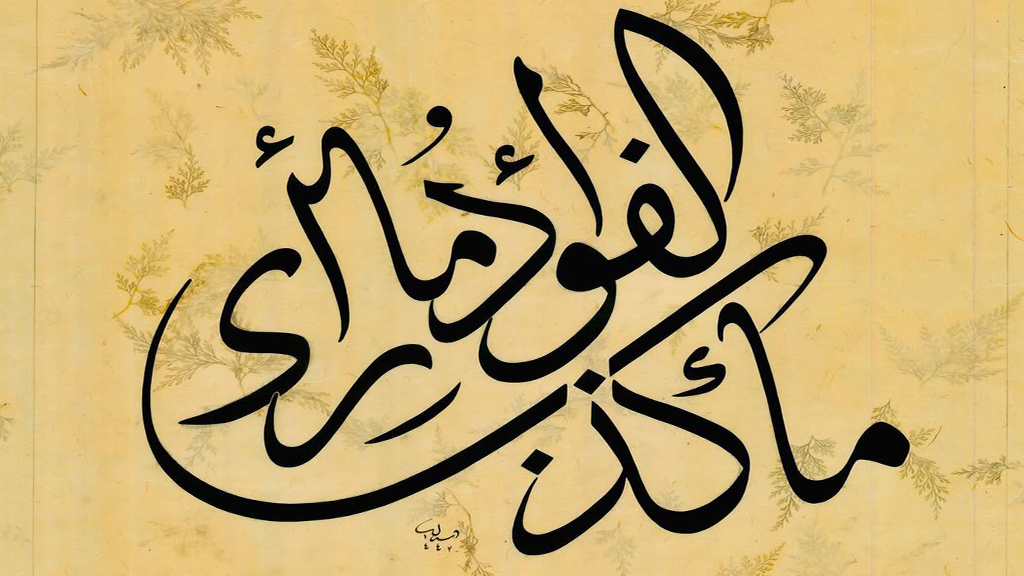 ما كذب الفؤاد ما رأى